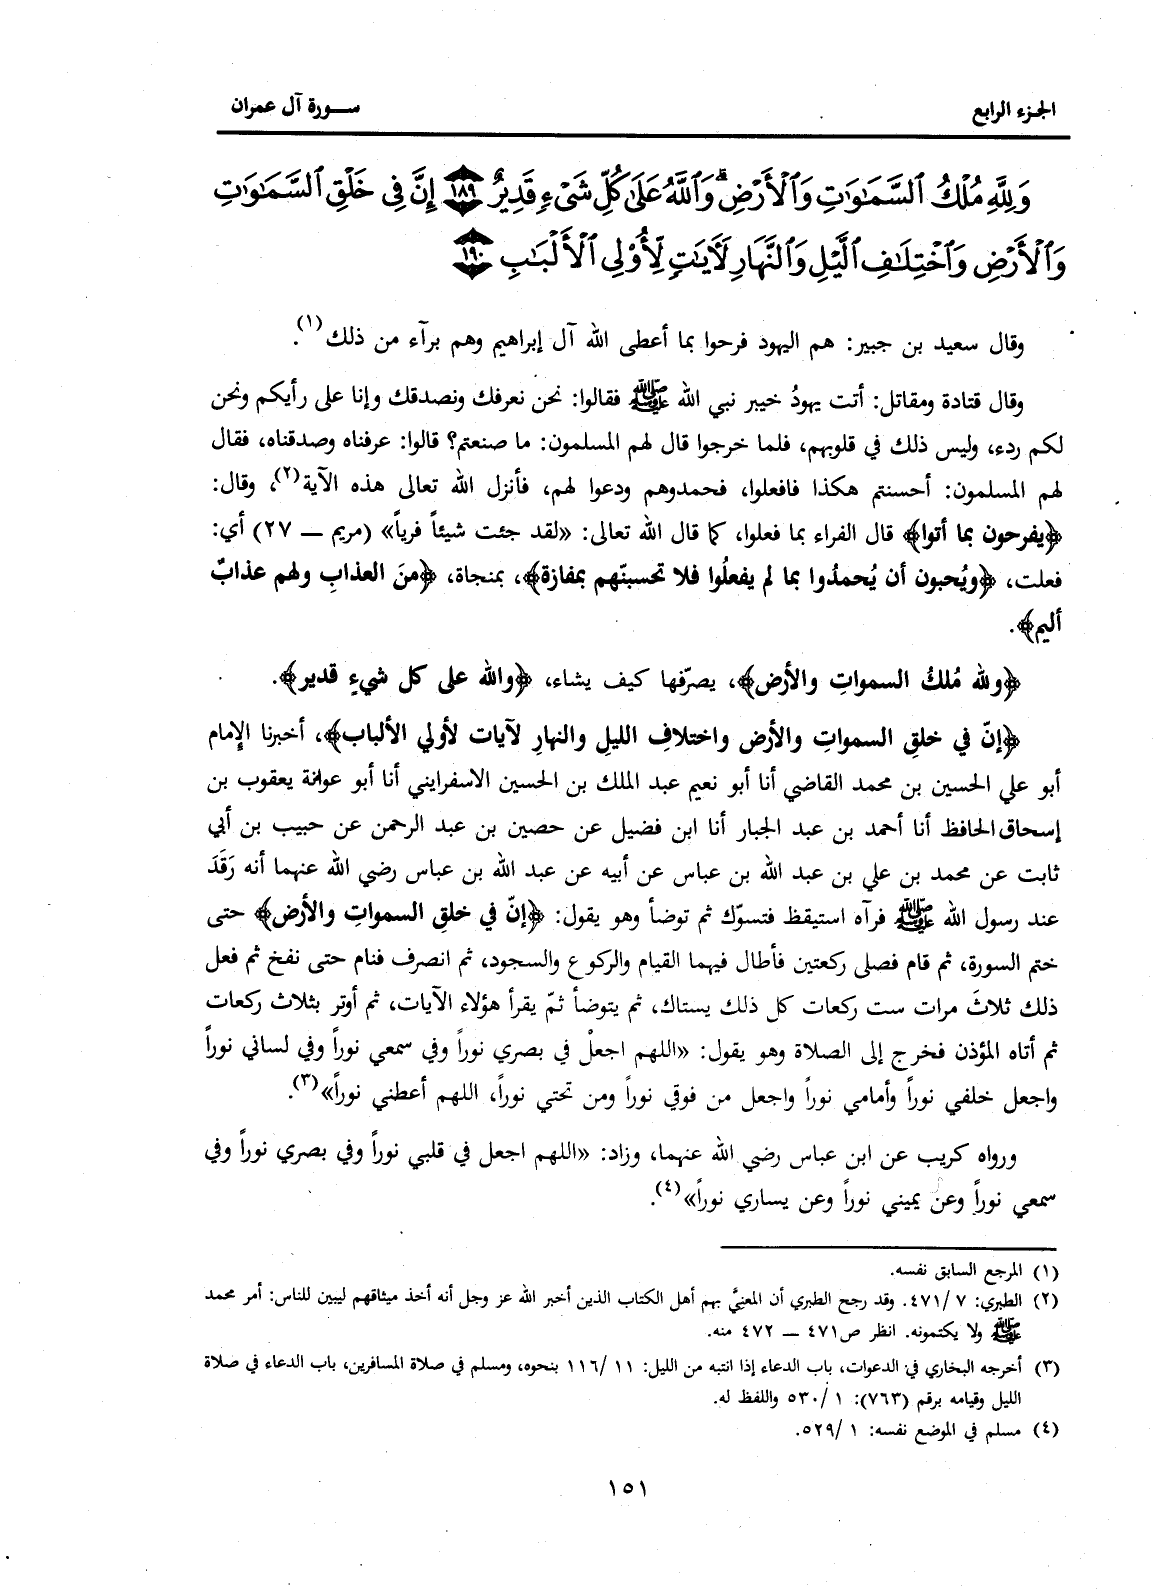 الجزء الرابع
ســورة آل عمران
وَلِلَّهِ مُلْكُ ٱلسَّمَٰوَٰتِ وَٱلْأَرْضِ ۗ وَٱللَّهُ عَلَىٰ كُلِّ شَىْءٍ قَدِيرٌ ١٨٩ إِنَّ فِى خَلْقِ ٱلسَّمَٰوَٰتِ
وَٱلْأَرْضِ وَٱخْتِلَٰفِ ٱلَّيْلِ وَٱلنَّهَارِ لَـَٔايَٰتٍ لِّأُو۟لِى ٱلْأَلْبَٰبِ ١٩٠
وقال سعيد بن جبير: هم اليهود فرحوا بما أعطى الله آل إبراهيم وهم برآء من ذلك(١).
وقال قتادة ومقاتل: أتت يهودُ خيبر نبي الله ﷺ فقالوا: نحن نعرفك ونصدقك وإنا على رأيكم ونحن
لكم ردء، وليس ذلك في قلوبهم، فلما خرجوا قال لهم المسلمون: ما صنعتم؟ قالوا: عرفناه وصدقناه، فقال
لهم المسلمون: أحسنتم هكذا فافعلوا، فحمدوهم ودعوا لهم، فأنزل الله تعالى هذه الآية(٢)، وقال:
﴿يفرحون بما أتوا﴾ قال الفراء بما فعلوا، كما قال الله تعالى: «لقد جئت شيئاً فرياً» (مريم ــ ٢٧) أي:
فعلت، ﴿ويُحبون أن يُحمدُوا بما لم يفعلُوا فلا تحسبنّهم بمفازة﴾، بمنجاة، ﴿منَ العذابِ ولهم عذابٌ
أليم﴾.
﴿ولله مُلكُ السمواتِ والأرض﴾، يصرّفها كيف يشاء، ﴿والله على كل شيءٍ قدير﴾.
﴿إنّ في خلقِ السمواتِ والأرض واختلافِ الليلِ والنهارِ لآيات لأولي الألباب﴾، أخبرنا الإمام
أبو علي الحسين بن محمد القاضي أنا أبو نعيم عبد الملك بن الحسين الاسفرايني أنا أبو عوانة يعقوب بن
إسحاق الحافظ أنا أحمد بن عبد الجبار أنا ابن فضيل عن حصين بن عبد الرحمن عن حبيب بن أبي
ثابت عن محمد بن علي بن عبد الله بن عباس عن أبيه عن عبد الله بن عباس رضي الله عنهما أنه رَقَدَ
عند رسول الله ﷺ فرآه استيقظ فتسوّك ثم توضأ وهو يقول: ﴿إنّ في خلقِ السمواتِ والأرض﴾ حتى
ختم السورة، ثم قام فصلى ركعتين فأطال فيهما القيام والركوع والسجود، ثم انصرف فنام حتى نفخ ثم فعل
ذلك ثلاثَ مرات ست ركعات كل ذلك يستاك، ثم يتوضأ ثمّ يقرأ هؤلاء الآيات، ثم أوتر بثلاث ركعات
ثم أتاه المؤذن فخرج إلى الصلاة وهو يقول: «اللهم اجعلْ في بصري نوراً وفي سمعي نوراً وفي لساني نوراً
واجعل خلفي نوراً وأمامي نوراً واجعل من فوقي نوراً ومن تحتي نوراً، اللهم أعطني نوراً»(٣).
ورواه كريب عن ابن عباس رضي الله عنهما، وزاد: «اللهم اجعل في قلبي نوراً وفي بصري نوراً وفي
سمعي نوراً وعن يميني نوراً وعن يساري نوراً»(٤).
(١) المرجع السابق نفسه.
(٢) الطبري: ٧/ ٤٧١. وقد رجح الطبري أن المعنيَّ بهم أهل الكتاب الذين أخبر الله عز وجل أنه أخذ ميثاقهم ليبين للناس: أمر محمد
ﷺ ولا يكتمونه. انظر ص٤٧١ ــ ٤٧٢ منه.
(٣) أخرجه البخاري في الدعوات، باب الدعاء إذا انتبه من الليل: ١١/ ١١٦ بنحوه، ومسلم في صلاة المسافرين، باب الدعاء في صلاة
الليل وقيامه برقم (٧٦٣): ١/ ٥٣٠ واللفظ له.
(٤) مسلم في الموضع نفسه: ١/ ٥٢٩.
١٥١